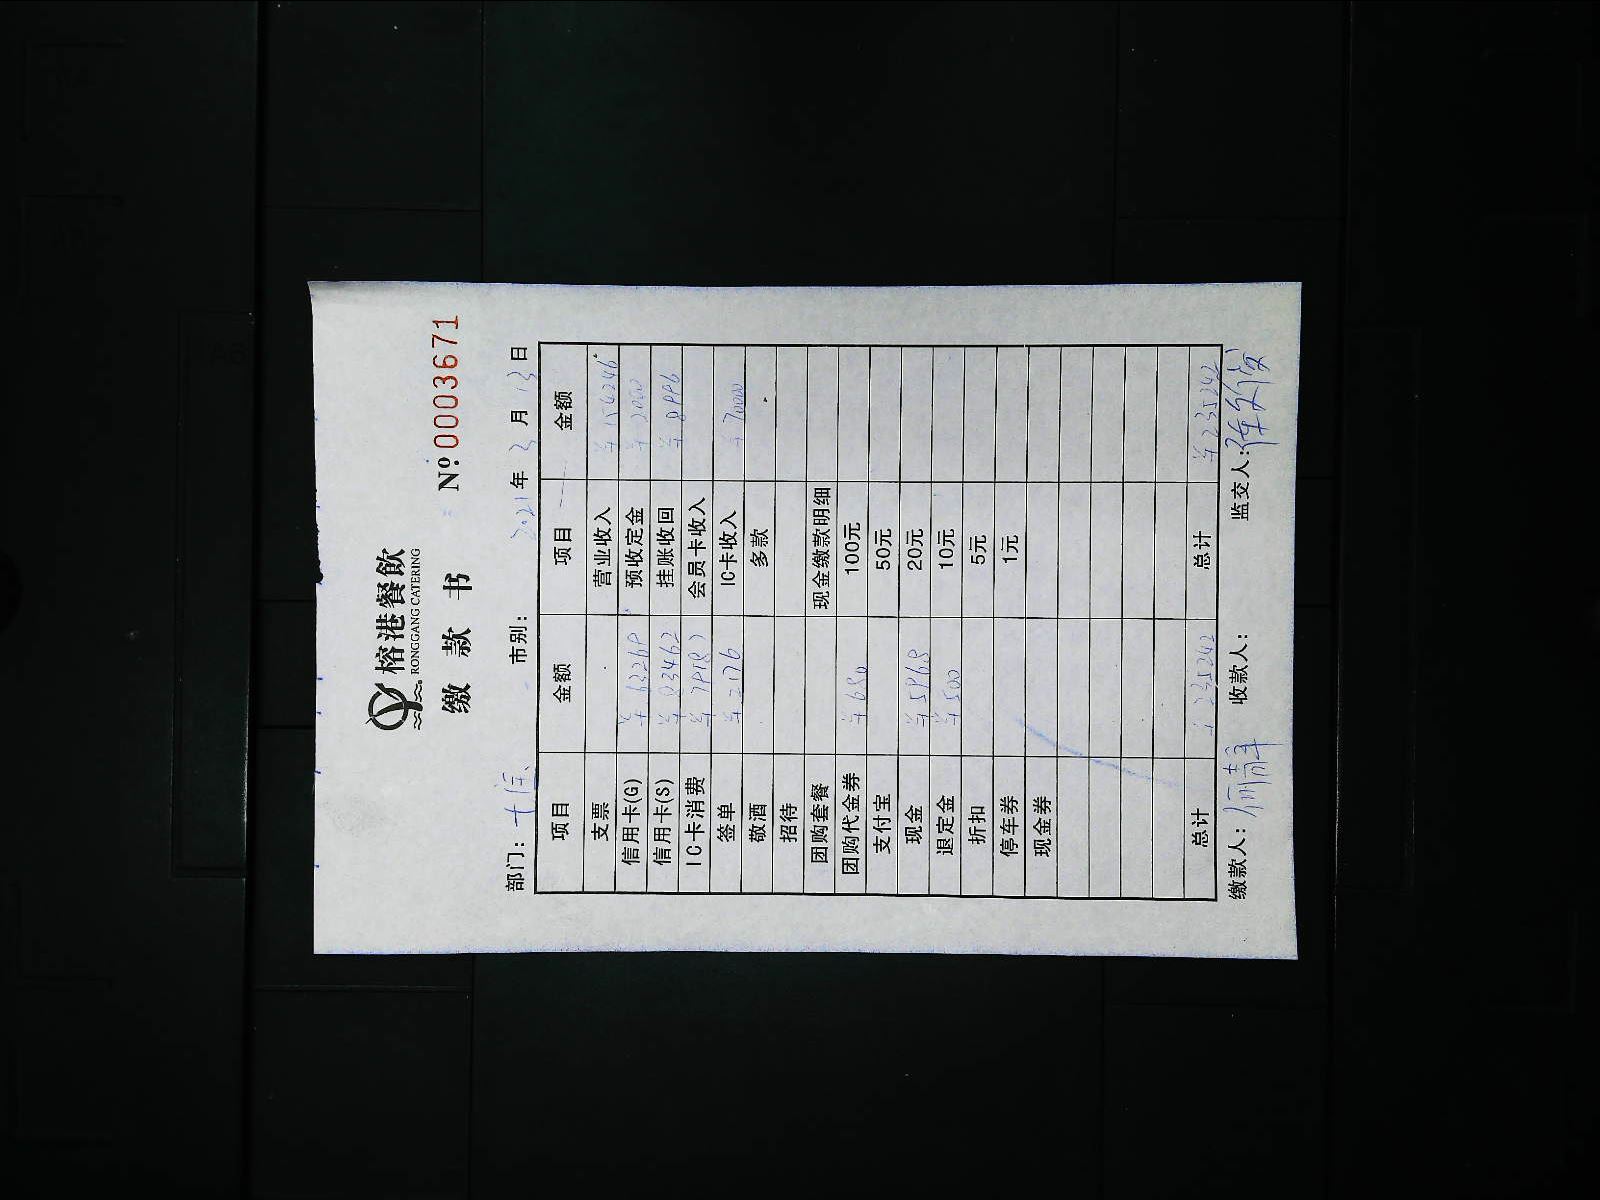 榕港餐飲
RONGGANG CATERING
缴 款 书 Nº:0003671
部门: 市别: 2021年 3月 13日
项目 金额 项目 金额
支票 营业收入 ¥154246
信用卡(G) ¥63269 预收定金 ¥2000
信用卡(S) ¥83462 挂账收回 ¥8996
IC卡消费 ¥79187 会员卡收入
签单 ¥2176 IC卡收入 ¥70000
敬酒 多款
招待
团购套餐 现金缴款明细
团购代金券 ¥680 100元
支付宝 50元
现金 ¥5968 20元
退定金 ¥500 10元
折扣 5元
停车券 1元
现金券
总计 ¥235242 总计 ¥235242
缴款人: 收款人: 监交人: